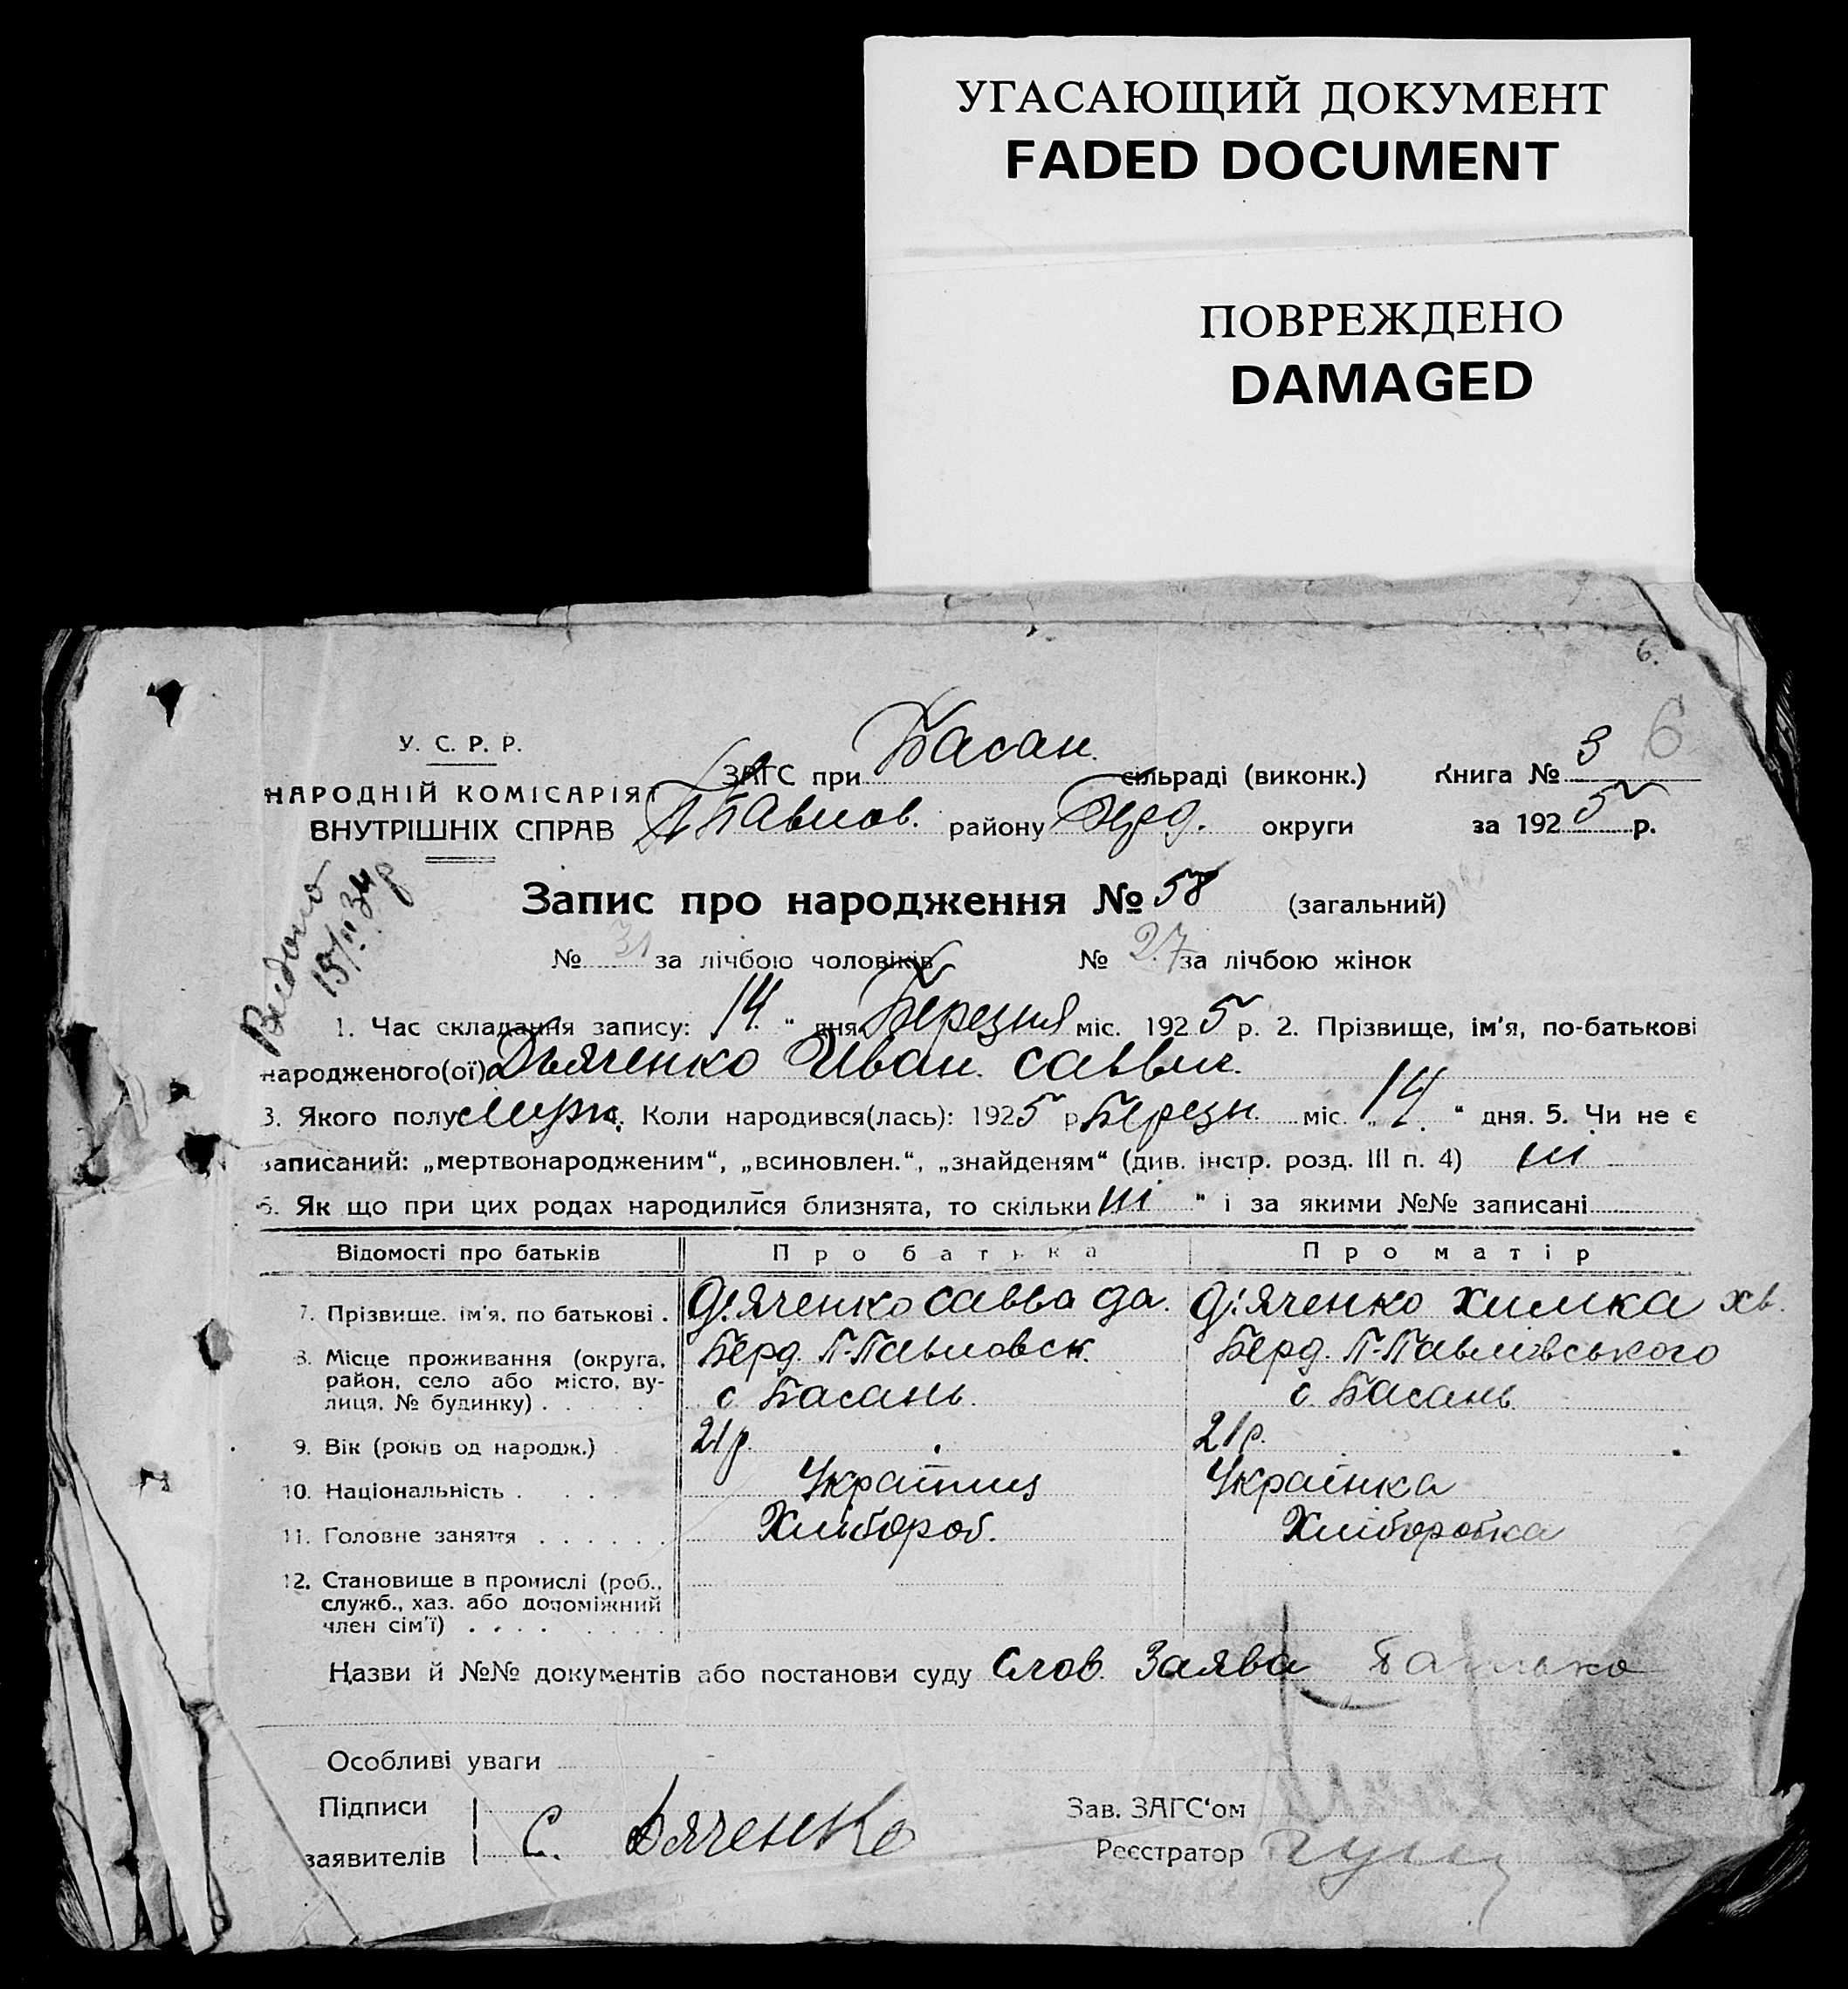 УГАСАЮЩИЙ ДОКУМЕНТ
FADED DOCUMENT
ПОВРЕЖДЕНО
DAMAGED
6.
У. С. Р. Р.
НАРОДНІЙ КОМІСАРІЯТ
ВНУТРІШНІХ СПРАВ
ЗАГС при Басан. сільраді (виконк.) Книга № 3 6
П Павлов. району Берд. округи за 1925 р.
Видано
15/II 34 р
Запис про народження № 58 (загальний)
№ 31 за лічбою чоловіків № 27 за лічбою жінок
1. Час складання запису: 14 " дня Березня міс. 1925 р. 2. Прізвище, ім'я, по-батькові
народженого(ої) Дьяченко Иван. Саввич.
3. Якого полу Муж. Коли народився(лась): 1925 р Березн. міс. „ 14 " дня. 5. Чи не є
записаний: „мертвонародженим“, „всиновлен.“, „знайденям“ (див. інстр. розд. III п. 4) ні
6. Як що при цих родах народилися близнята, то скільки ні " і за якими №№ записані
Відомості про батьків Про батька Про матір
7. Прізвище. ім'я. по батькові . Діяченко Савва Да. Діяченко Химка Хв.
8. Місце проживання (округа, Берд. П-Павловск. Берд. П-Павлівського
район, село або місто, ву-
лиця, № будинку) . с Басань. с. Басань
9. Вік (років од народж.) 21 р. 21 р.
10. Національність . Українець Українка
11. Головне заняття Хлібороб. Хліборобка
12. Становище в промислі (роб.,
служб., хаз. або допоміжний
член сім'ї)
Назви й №№ документів або постанови суду Слов. Заява Батько
Особливі уваги
Підписи Зав. ЗАГС‘ом
заявителів С. Дяченко Реєстратор